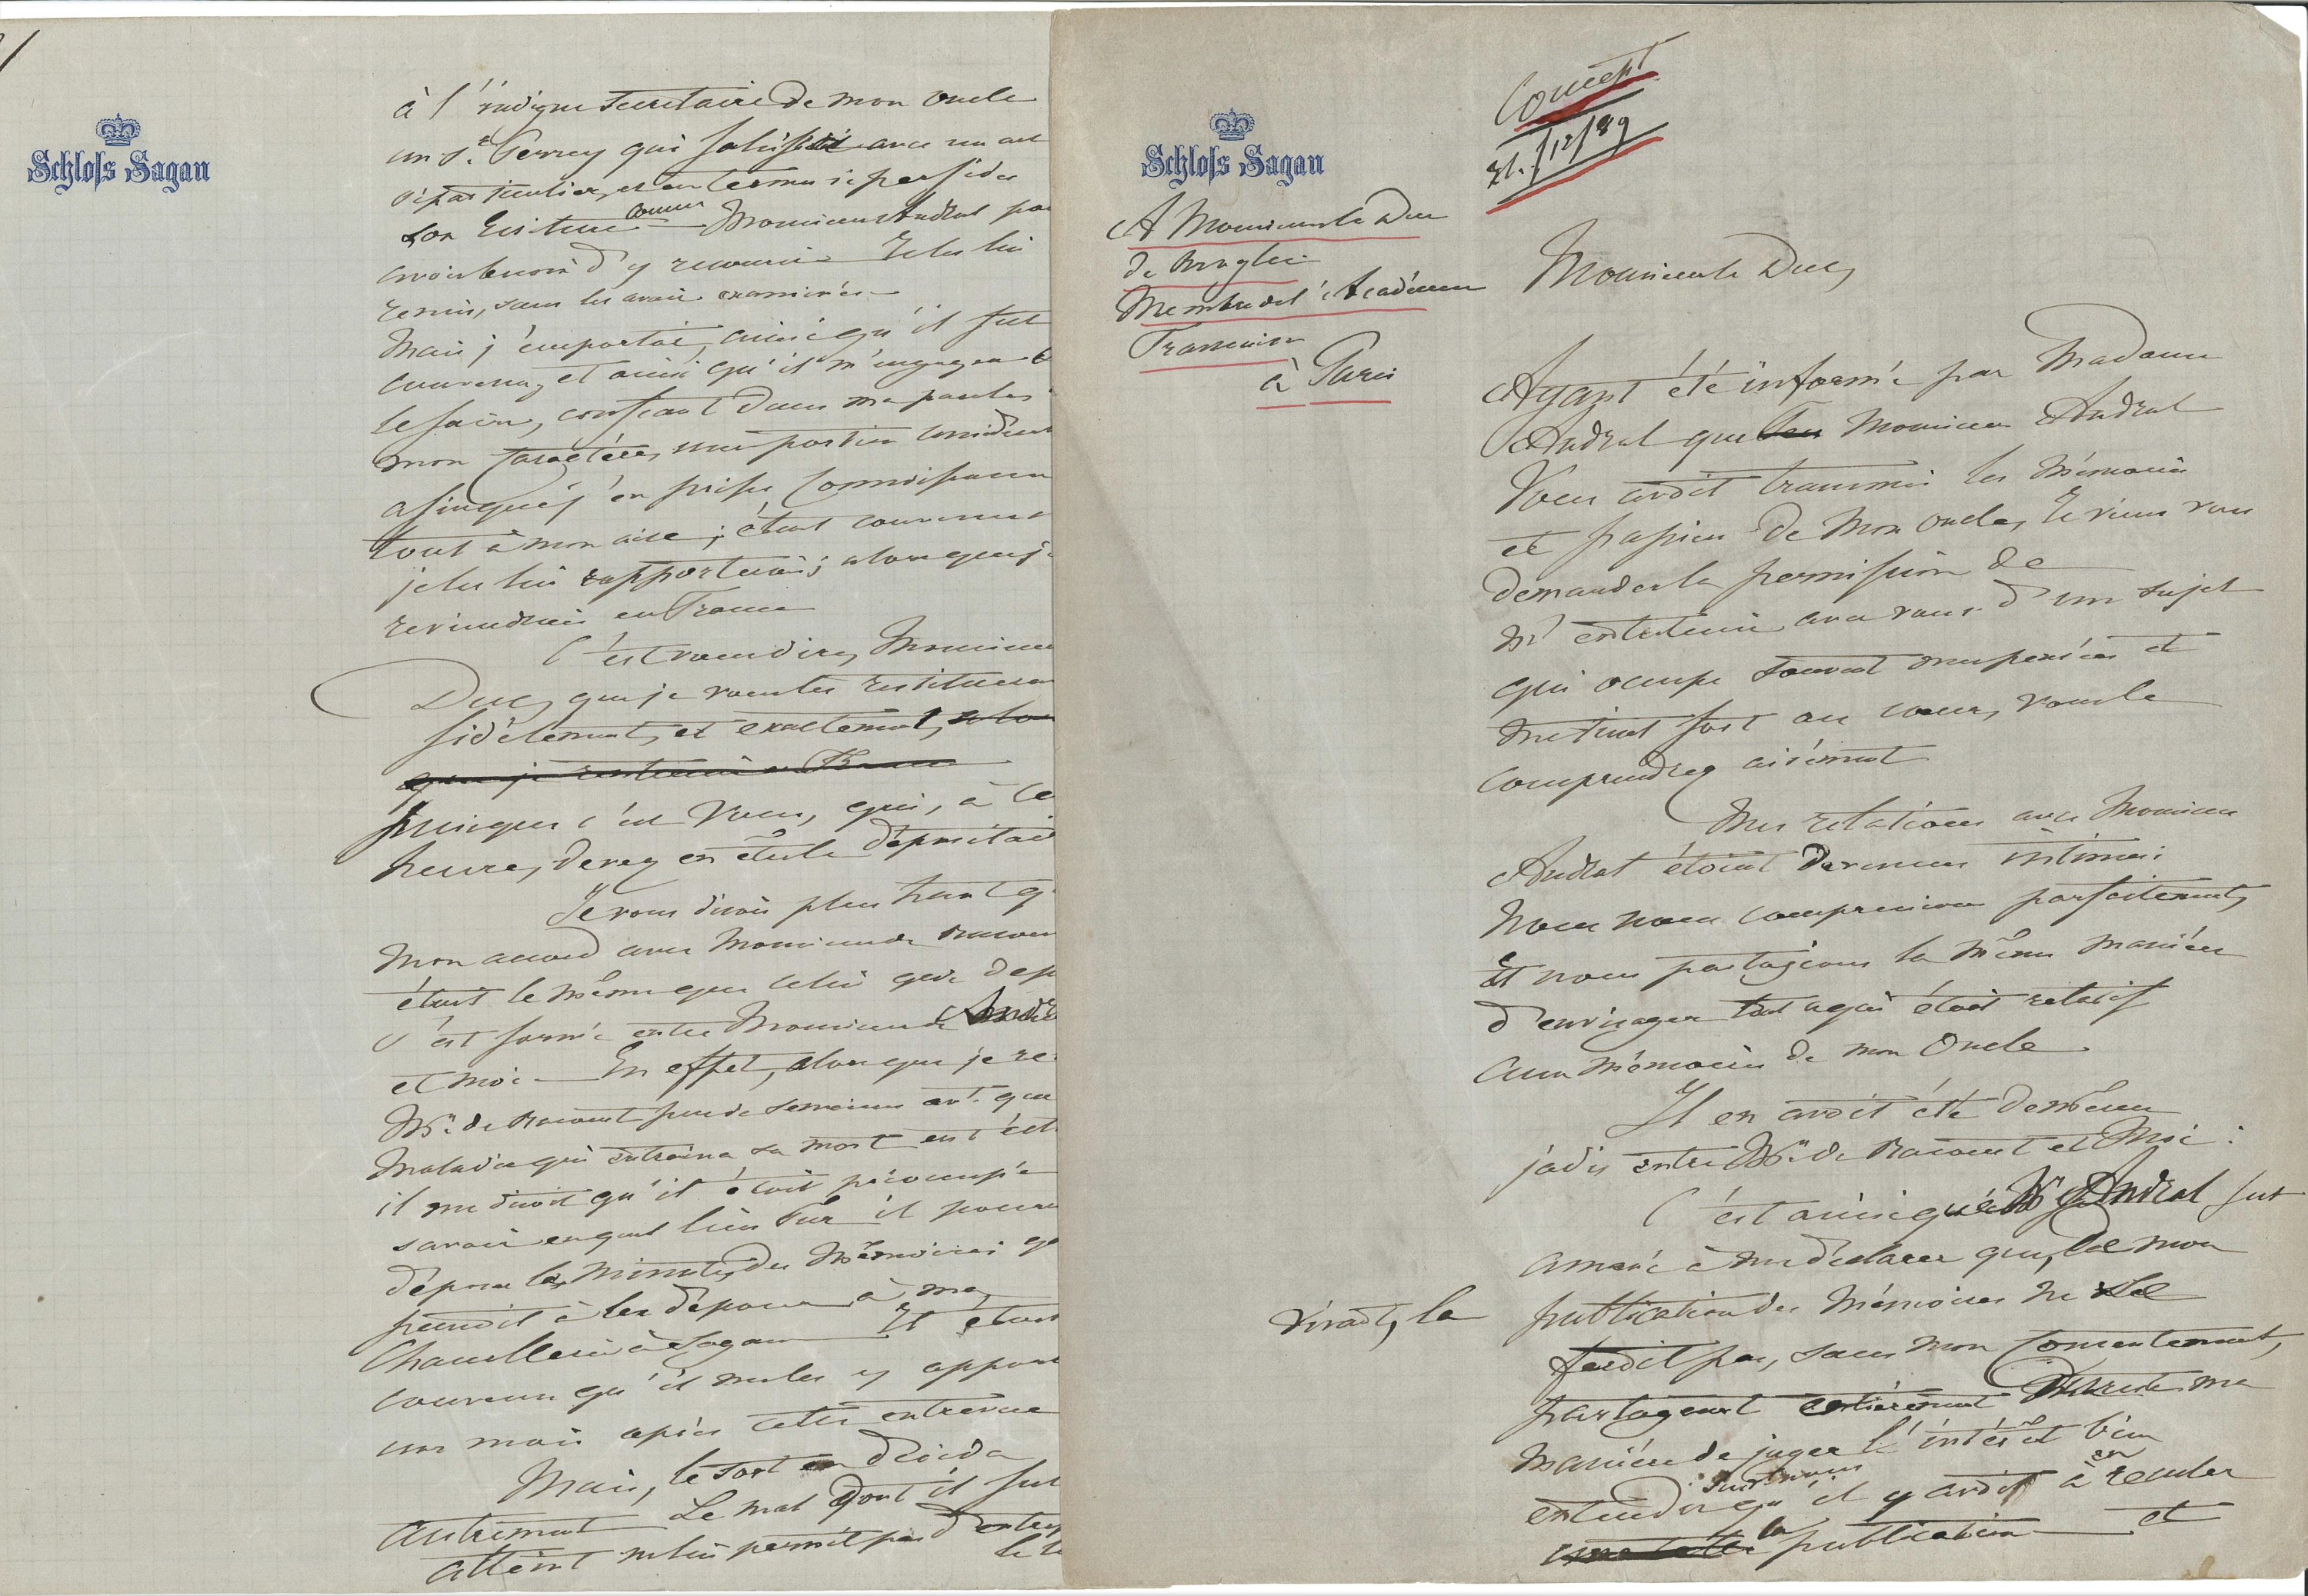 Schloss Sagan
à l'indigne secretaire de mon oncle
un Sr. Perrey qui
son écriture comme Monsieur Andral
avoir besoin d'y recourir Je les lui
remis, sans les avoir examinés
Mais j'emportai, ainsi qu'il fut
convenu, et ainsi qu'il m'engagea
le faire, confiant dans ma parole
mon caractère, une portion
afin que j'en prisse connaissance
tout à mon aise; étant convenu
je les lui rapporterais; alors que je
reviendrais en France
C'est vous dire, Monsieur
Duc, que je vous les restituerai
fidèlement, et exactement,
que je rentrerai en France
puisque c'est Vous, qui, à ce
heure, devez en être le dépositai
Je vous disais plus haut q
mon accord avec Monsieur de Bacour
étoit le même que celui qui dep
s'est formé entre Monsieur de Andra
et moi – En effet, alors que je re
Mr. de Bacourt peu de semaines avt. que
maladie qui entraina sa mort
il me disoit qu'il étoit préoccupé
savoir en quel lieu sur il pourra
déposer les minutes des Mémoires
pensoit à les déposer à ma
Chancellerie à Sagan Il étoit
convenu qu'il me les y apport
un mois après cette entrevue
Mais, le sort en décida
autrement Le mal dont il fut
atteint ne lui permit pas d'entrep
Schloss Sagan
Concept
21./12/89
A Monsieur le Duc
de Broglie
Membre de l'Académie
Française
à Paris
Monsieur le Duc,
Ayant été informé par Madame
Andral que feu Monsieur Andral
Vous avoit transmis les Mémoires
et papiers de Mon Oncle, Je viens vous
demander la permission de
M'entretenir avec vous d'un sujet
qui occupe souvent mes pensées et
me tient fort au coeur, vous le
comprendrez aisément
Mes relations avec Monsieur
Andral étoient devenues intimes:
Nous nous comprenions parfaitement,
et nous partagions la même manière
d'envisager tout ce qui étoit relatif
aux mémoires de mon Oncle
Il en avoit été de même
jadis entre Mr. de Bacourt et Moi:
C'est ainsi que Mr Andral fut
amené à me déclarer que, de mon
vivant, la publication des Mémoires ne se
feroit pas, sans mon consentement,
partageant entièrement du reste ma
manière de juger l'intérêt bien
entendu qu'il y avoit à en reculer
la publication et